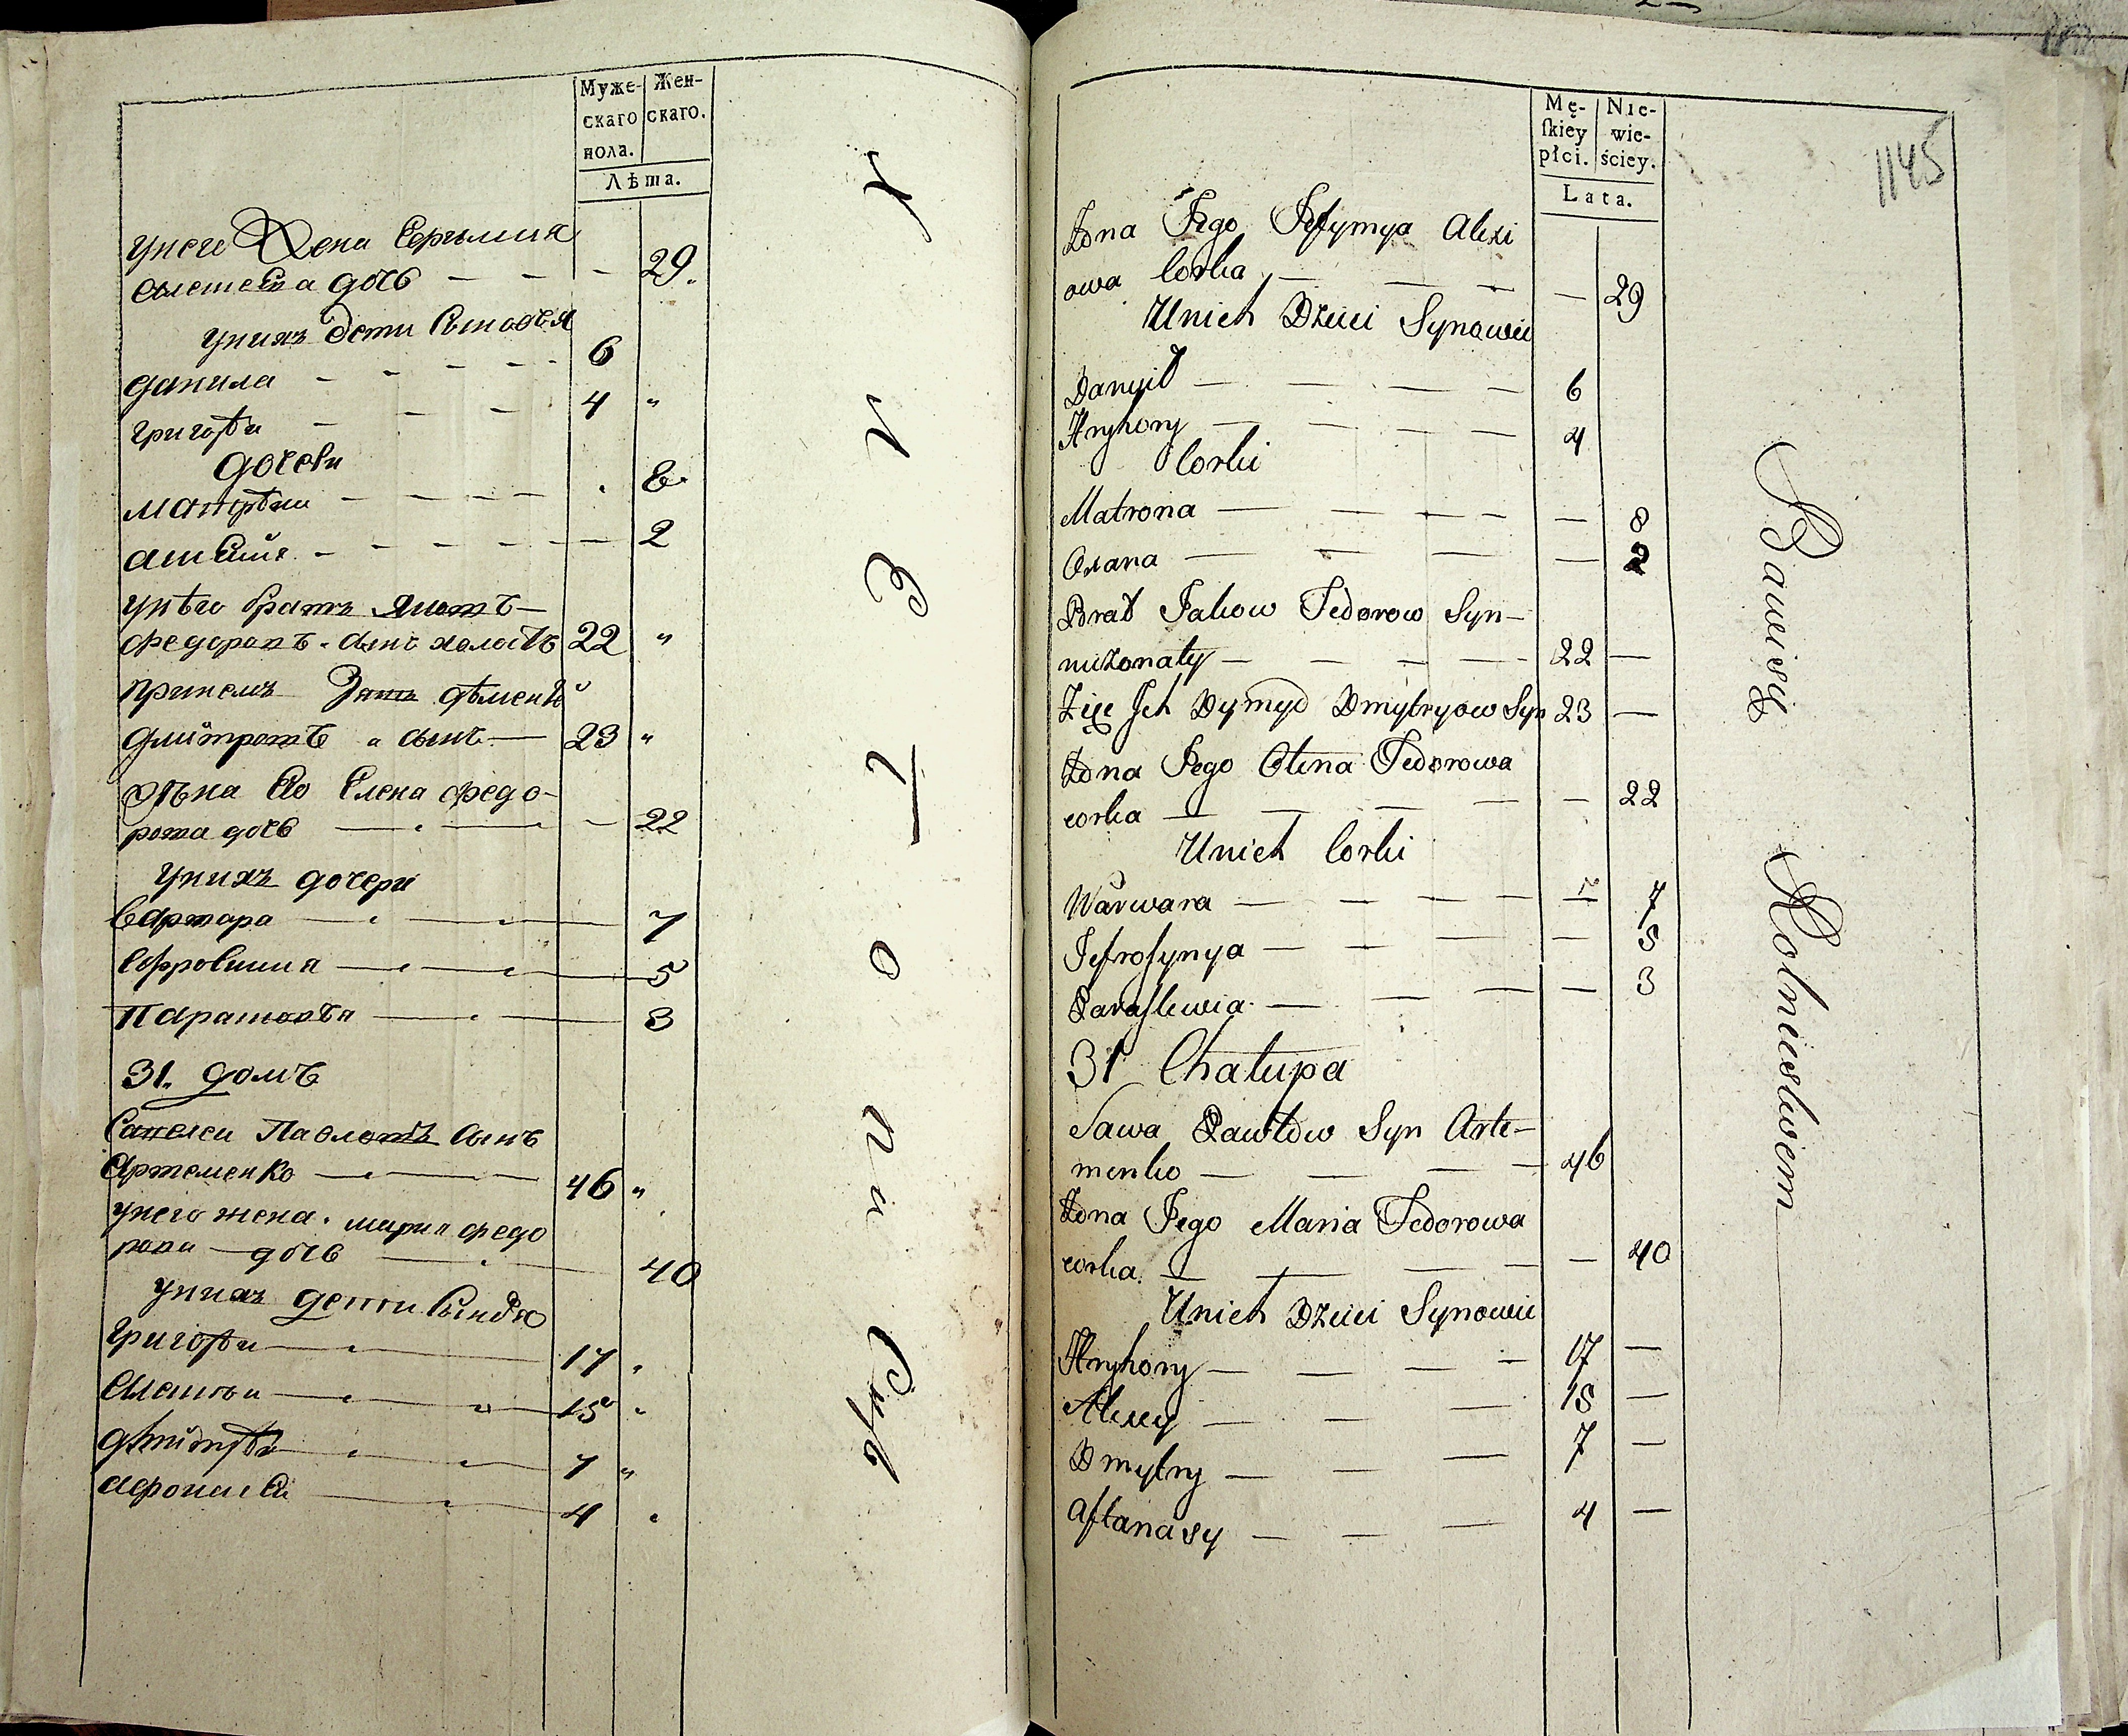 Муже-
скаго
пола.
Жен-
скаго.
Лѣта.
унего Жена
дочь — — — 29.
унихъ дети Сыновья
данила — — — — — 6
григорѣи — — — 4 "
дочери
матрѣна — — — — . 8
2
унѣго братъ
федоровъ сынъ холостъ 22 "
Зять
сынъ — 23 "
Жѣна Его Елена федо-
рова дочь — — — 22
унихъ дочери
варвара — — 7
Ефросиния — — 5
Парасковѣя — — 3
31. домъ
Павловъ сынъ
Артеменко — — 46 "
унего жена. мария федо
рова — дочь — 40
унихъ дети Сыновья
Григорѣи — 17 "
Алексѣи — 15 "
дмитрѣи — 7 "
афонасеи — 4 "
Mę-
ſkiey
płci.
Nie-
wie-
ściey.
Lata.
1145
Zona Jego Jefymya Alexi
owa Corka — — — — 29
Unich Dzieci Synowie
Danyił — — — — 6
Hryhory — — — — 4
Corki
Matrona — — — — — 8
Oxana — — — — 2
Brat Jakow Fedorow Syn —
niezonaty — — — — 22 —
Zięc Ich Dymyd Dmytryow Syn 23 —
Zona Jego Olena Fedorowa
corka — — — — — 22
Unich Corki
Warwara — — — — — 7
Jefroſynya — — — — 5
Paraſkewia — — — — 3
31 Chałupa
Sawa Pawłow Syn Arte-
menko — — — — 46
Zona Jego Maria Fedorowa
corka. — — — — — 40
Unich Dzieci Synowie
Hryhory — — — 17 —
Alexey — — 15 —
Dmytry — — — 7 —
Aftanasy — — — 4 —